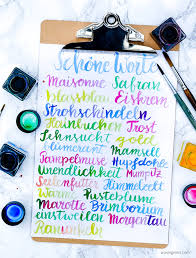 Schöne Worte
Maisonne Safran
Blassblau Eiskrem
Strohschindeln
Hainbuchen Trost
Sehnsucht gold
blümerant Mamsell
Sampelmuse Hupfdohle
Unendlichkeit Mumpitz
Seelenfutter Himmelbett
Warm Pusteblume
Marotte Brimborium
einstweilen Morgentau
Ranunkeln